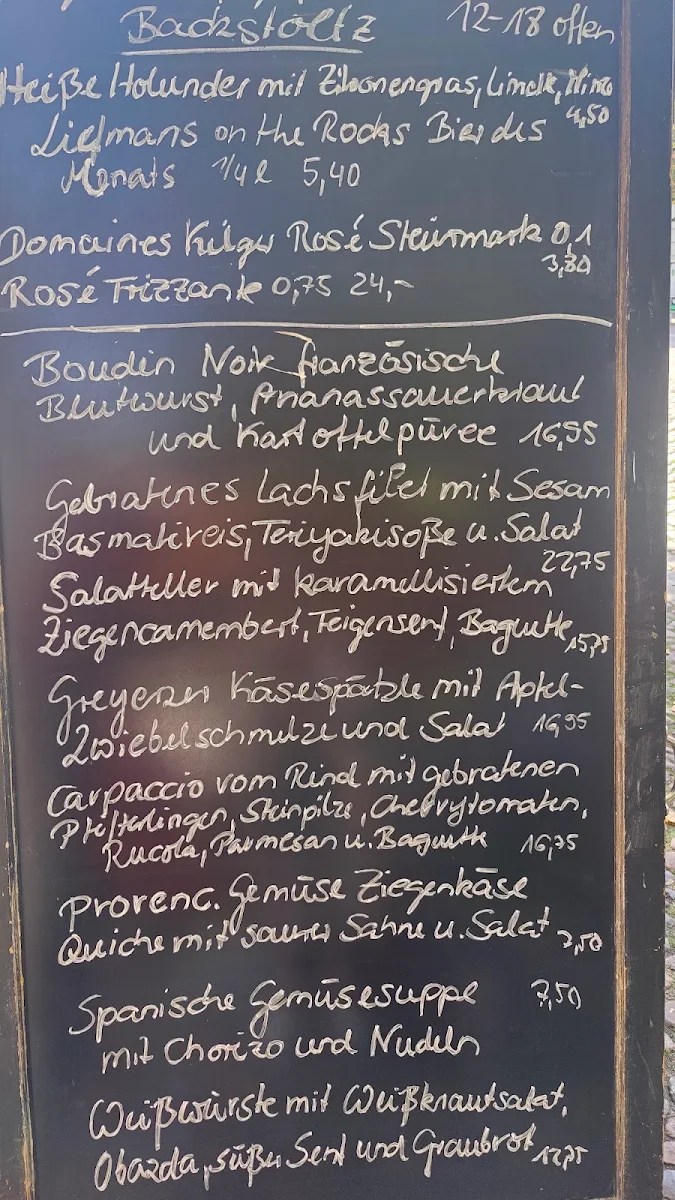 Backstöltz 12-18 offen
Heiße Holunder mit Zitronengras, Limette, Minze
4,50
Liefmans on the Rocks Bier des
Monats 1/4 l 5,40
Domaines Kilger Rosé Steiermark 0,1
3,80
Rosé Frizzante 0,75 24,-
Boudin Noir französische
Blutwurst, Ananassauerkraut
und Kartoffelpüree 16,95
Gebratenes Lachsfilet mit Sesam
Basmatireis, Teriyakisoße u. Salat
22,75
Salatteller mit karamellisiertem
Ziegencamembert, Feigensenf, Baguette 15,75
Greyerzer Käsespätzle mit Apfel-
Zwiebelschmelze und Salat 16,95
Carpaccio vom Rind mit gebratenen
Pfifferlingen, Steinpilze, Cherrytomaten,
Rucola, Parmesan u. Baguette 16,75
Provenc. Gemüse Ziegenkäse
Quiche mit saurer Sahne u. Salat 7,50
Spanische Gemüsesuppe 7,50
mit Chorizo und Nudeln
Weißwürste mit Weißkrautsalat,
Obazda, süßer Senf und Graubrot 12,75